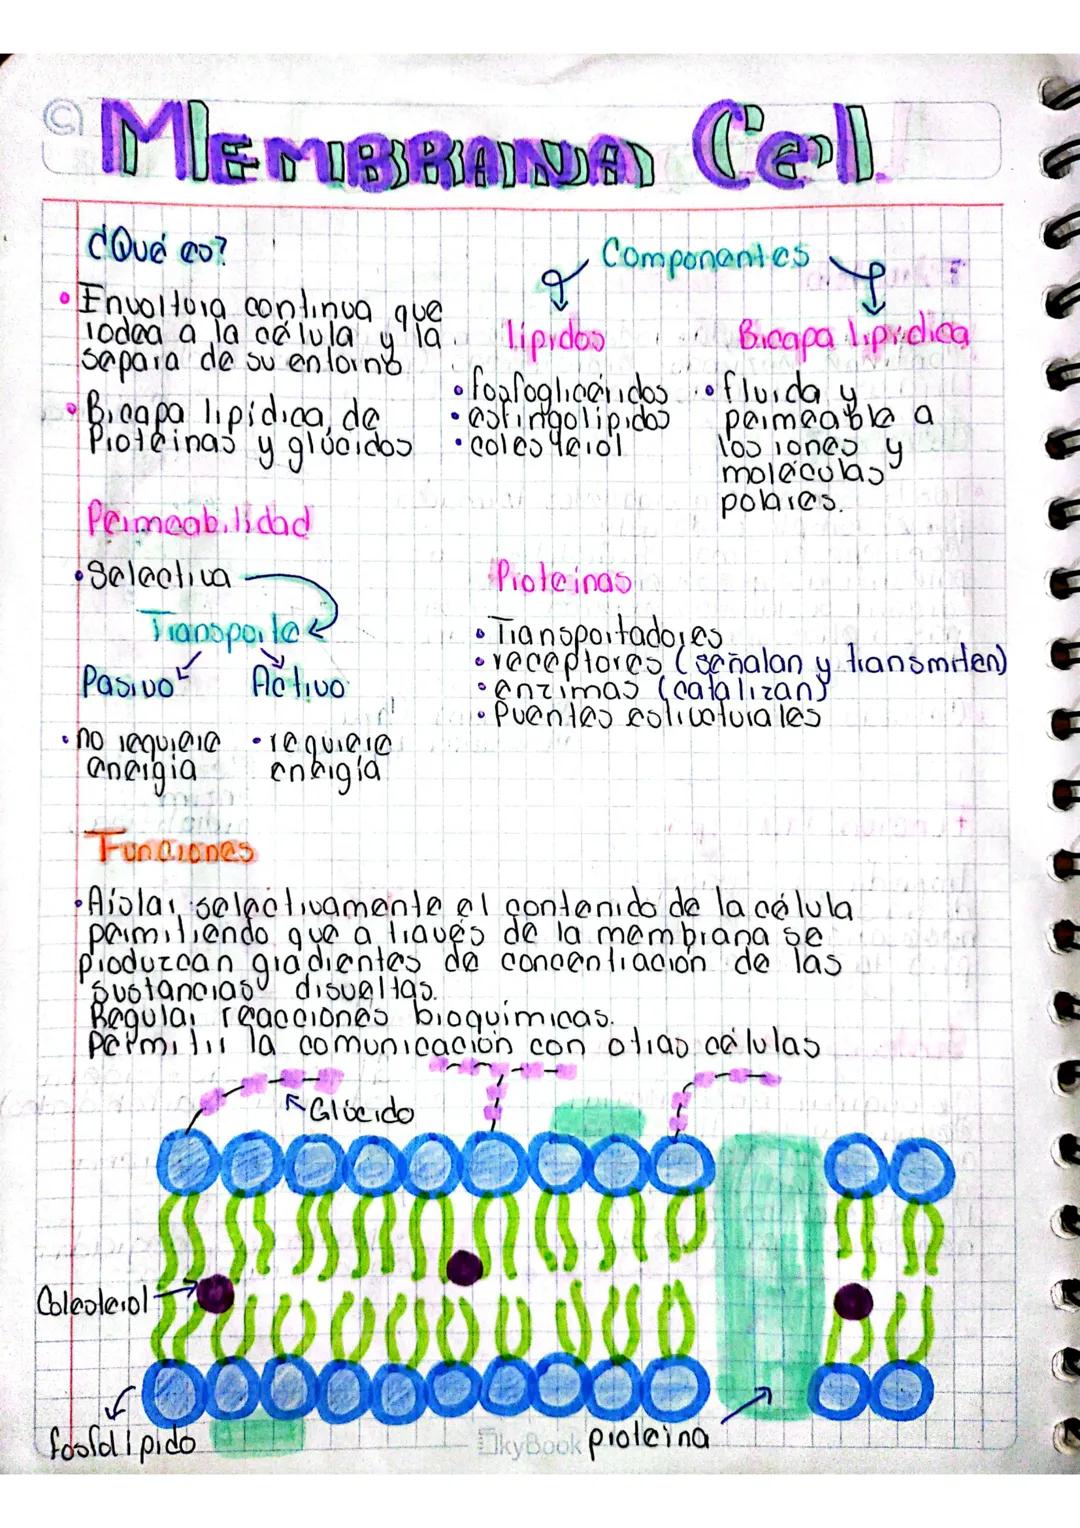 MEMBRANA Cel.
¿Qué es?
• Envoltura continua que
rodea a la célula y la
separa de su entorno
• Bicapa lipídica, de
Proteínas y glúcidos
Componentes
lípidos
• fosfoglicéridos
• esfingolípidos
• colesterol
Bicapa lipídica
• fluida y
permeable a
los iones y
moléculas
polares.
Permeabilidad
• Selectiva
Transporte
Pasivo
Activo
• no requiere
energía
• requiere
energía
Proteínas
• Transportadores
• receptores (señalan y transmiten)
• enzimas (catalizan)
• Puentes estructurales
Funciones
• Aislar selectivamente el contenido de la célula
permitiendo que a través de la membrana se
produzcan gradientes de concentración de las
sustancias disueltas.
Regular reacciones bioquímicas.
Permitir la comunicación con otras células
Glúcido
Colesterol
fosfolípido
SkyBook
proteína